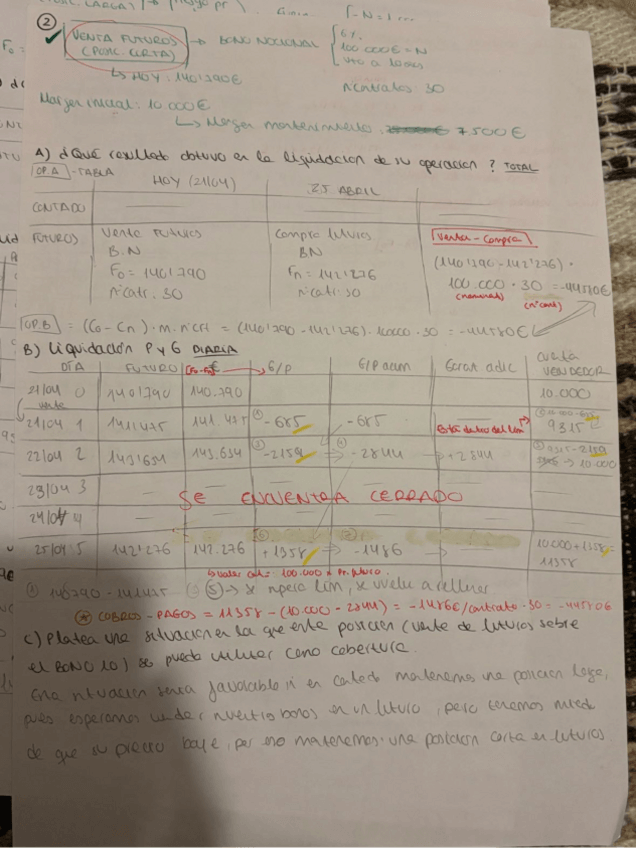 ②
VENTA FUTUROS → BONO NOCIONAL { 6%
(POSIC. CORTA) 100.000€ = N
↳ HOY: 140'790€ vto a 10 años
nº contratos 30
Margen inicial: 10.000€
↳ Margen mantenimiento 7500€
A) ¿Qué resultado obtuvo en la liquidación de su operación? TOTAL
OP.A - TABLA HOY (21/04) 25 ABRIL
CONTADO
FUTUROS Venta FUTUROS Compra futuros Ventas - Compra
B.N BN (140'790 - 142'276) ·
F0 = 140'790 Fn = 142'276 100.000 · 30 = -44580€
nº catr. 30 nº catr: 30 (nominal) (nº cont)
OP.B = (C0 - Cn) · m · nº cft = (140'790 - 142'276) · 10000 · 30 = -44580€
B) Liquidación P y G DIARIA
DÍA FUTURO € G/P G/P acum Garan adic Cuenta VENDEDOR
21/04 0 140'790 140.790 10.000
venta
21/04 1 141'475 141.475 -685 -685 Está dentro del lím 9315
22/04 2 143'634 143.634 -2159 → -2844 → +2844 9315-2159 → 10.000
23/04 3
SE ENCUENTRA CERRADO
24/04 4
25/04 5 142'276 142.276 +1358 → -1486 → 10.000+1358 = 11358
↳ valor cont = 100.000 x Pr. futuro
① 140790 - 141475 ⑤ → se rompe lím, se vuelve a rellenar
★ COBROS - PAGOS = 11358 - (10.000 + 2844) = -1486€/contrato · 30 = -44580€
C) Plantea una situación en la que esta posición (venta de futuros sobre
el BONO 10) se pueda utilizar como cobertura.
Una situación sería favorable si en contado mantenemos una posición larga,
pues esperamos vender nuestros bonos en un futuro, pero tenemos miedo
de que su precio baje, por eso mantenemos una posición corta en futuros